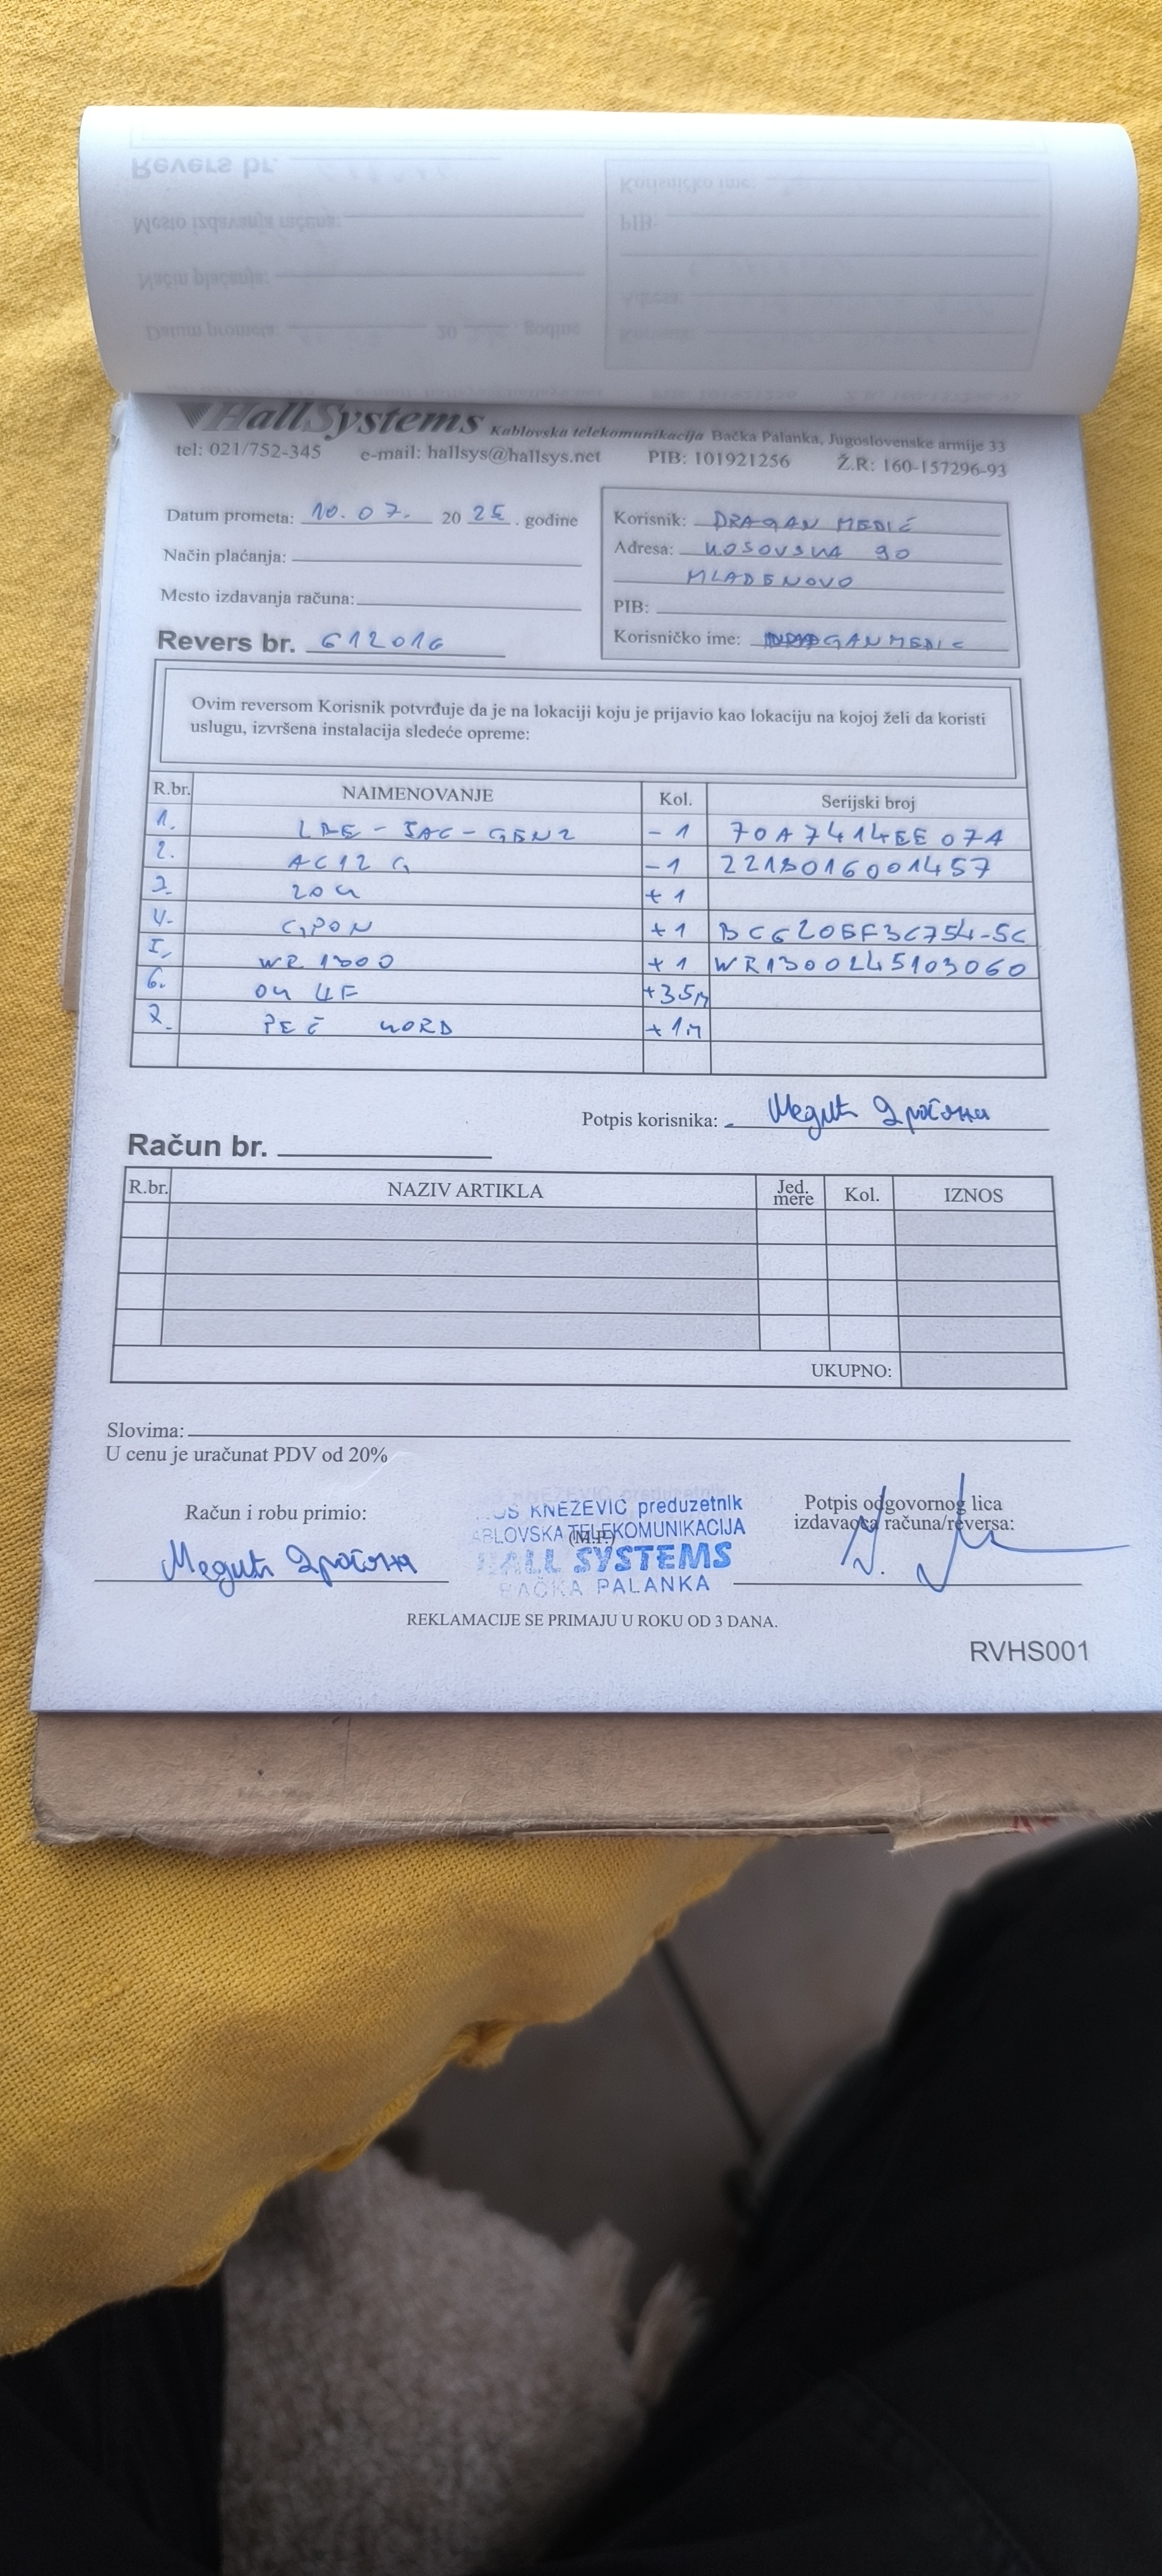 HallSystems Kablovska telekomunikacija Bačka Palanka, Jugoslovenske armije 33
tel: 021/752-345 e-mail: hallsys@hallsys.net PIB: 101921256 Ž.R: 160-157296-93
Datum prometa: 10.07. 20 25 . godine
Način plaćanja:
Mesto izdavanja računa:
Revers br. 612016
Korisnik: DRAGAN MEDIĆ
Adresa: KOSOVSKA 90
MLADENOVO
PIB:
Korisničko ime: GANMEDIC
Ovim reversom Korisnik potvrđuje da je na lokaciji koju je prijavio kao lokaciju na kojoj želi da koristi
uslugu, izvršena instalacija sledeće opreme:
R.br. NAIMENOVANJE Kol. Serijski broj
1. LBE-5AC-GEN2 -1 70A7414EE07A
2. AC12G -1 2218016001457
3. +1
4. GPON +1 BCG205F3C754-5C
5. WR1300 +1 WR1300245103060
6. OK 4F +35m
7. PEČ KORD +1m
Potpis korisnika: Медић Драгана
Račun br.
R.br. NAZIV ARTIKLA Jed. mere Kol. IZNOS
UKUPNO:
Slovima:
U cenu je uračunat PDV od 20%
Račun i robu primio:
Медић Драгана
KNEŽEVIĆ preduzetnik
TELEKOMUNIKACIJA
(M.P.)
HALL SYSTEMS
BAČKA PALANKA
Potpis odgovornog lica
izdavaoca računa/reversa:
REKLAMACIJE SE PRIMAJU U ROKU OD 3 DANA.
RVHS001